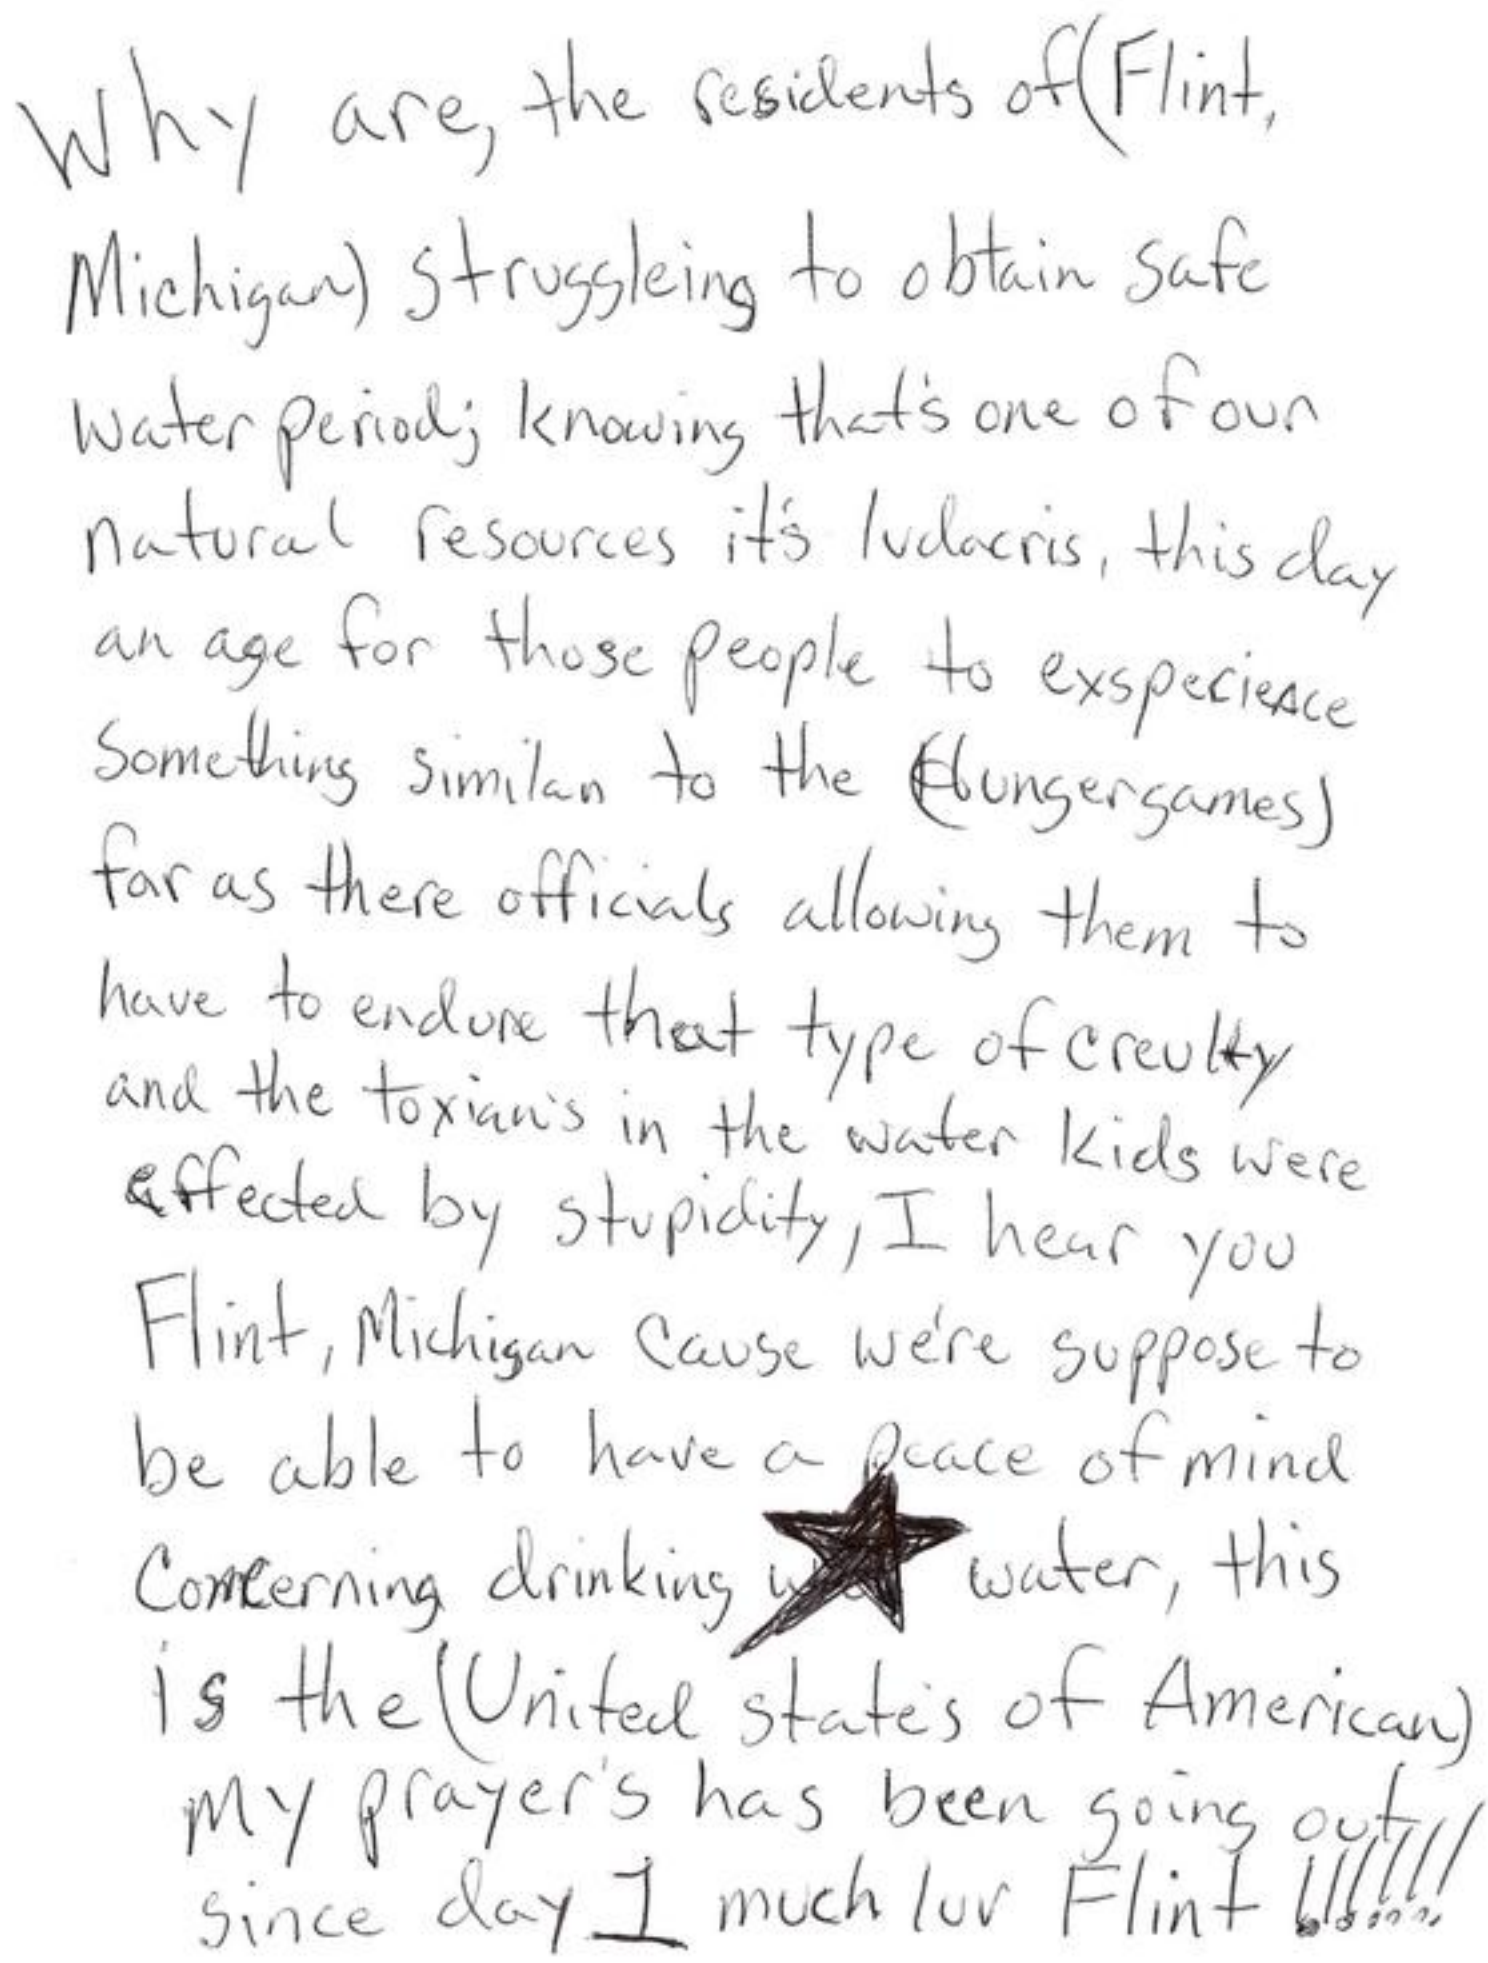 Why are, the residents of (Flint,
Michigan) struggleing to obtain safe
water period; knowing that's one of our
natural resources it's ludacris, this day
an age for those people to exsperience
Something similar to the (Hungergames)
far as there officials allowing them to
have to endure that type of creulty
and the toxian's in the water kids were
effected by stupidity, I hear you
Flint, Michigan Cause we're suppose to
be able to have a peace of mind
Concerning drinking water, this
is the (United state's of American)
My prayer's has been going out
since day 1 much luv Flint !!!!!!!